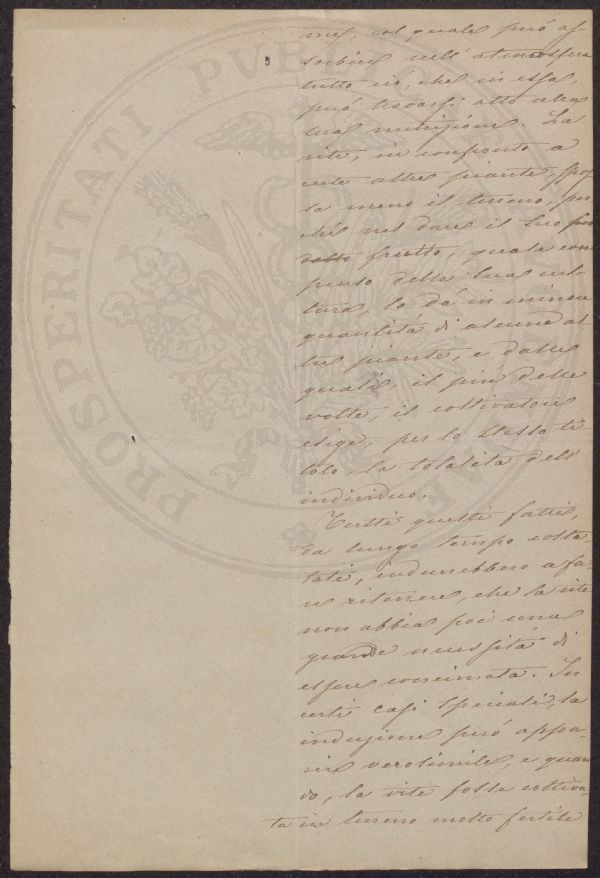 me, col quale può as-
sorbire nell'atmosfera
tutto ciò, che in essa,
può trovarsi atto alla
sua nutrizione. La
vite, in confronto a
certe altre piante, spos-
sa meno il terreno, per-
ché nel dare il suo pro-
dotto frutto, quale com
penso della sua col-
tura, lo dà in minor
quantità di alcune al-
tre piante, e dalle
quali, il più delle
volte, il coltivatore
esige, per lo stesso ti-
tolo, la totalità dell'
individuo.
Tutti questi fatti,
da lungo tempo costa-
tati, indurrebbero a fa-
re ritenere, che la vite
non abbia poi una
grande necessità di
essere concimata. In
certi casi speciali, la
induzione può appa-
rire verosimile, e quan
do, la vite fosse coltiva-
ta in terreno molto fertile
PROSPERITATI PUBLICAE